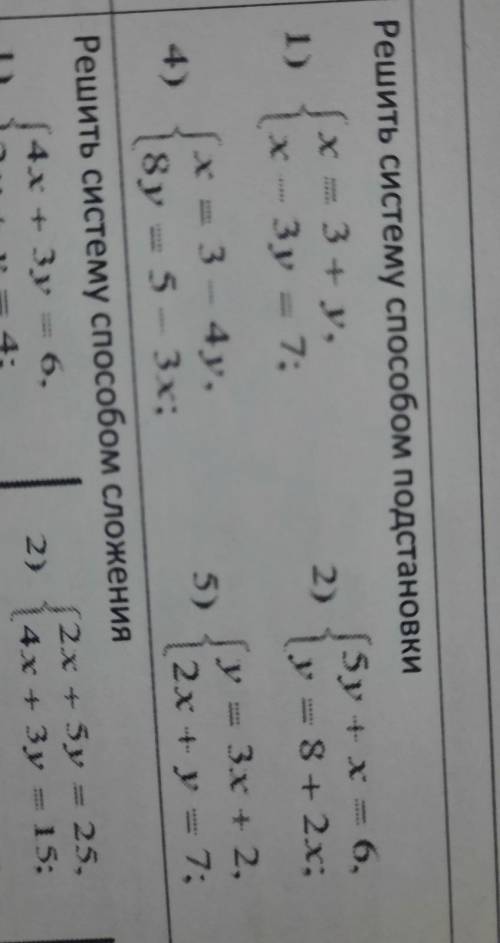 Решить систему способом подстановки
1) { x = 3 + y,
x − 3y = 7;
2) { 5y + x = 6,
y = 8 + 2x;
4) { x = 3 − 4y,
8y = 5 − 3x;
5) { y = 3x + 2,
2x + y = 7;
Решить систему способом сложения
1) { 4x + 3y = 6,
y = 4;
2) { 2x + 5y = 25,
4x + 3y = 15;